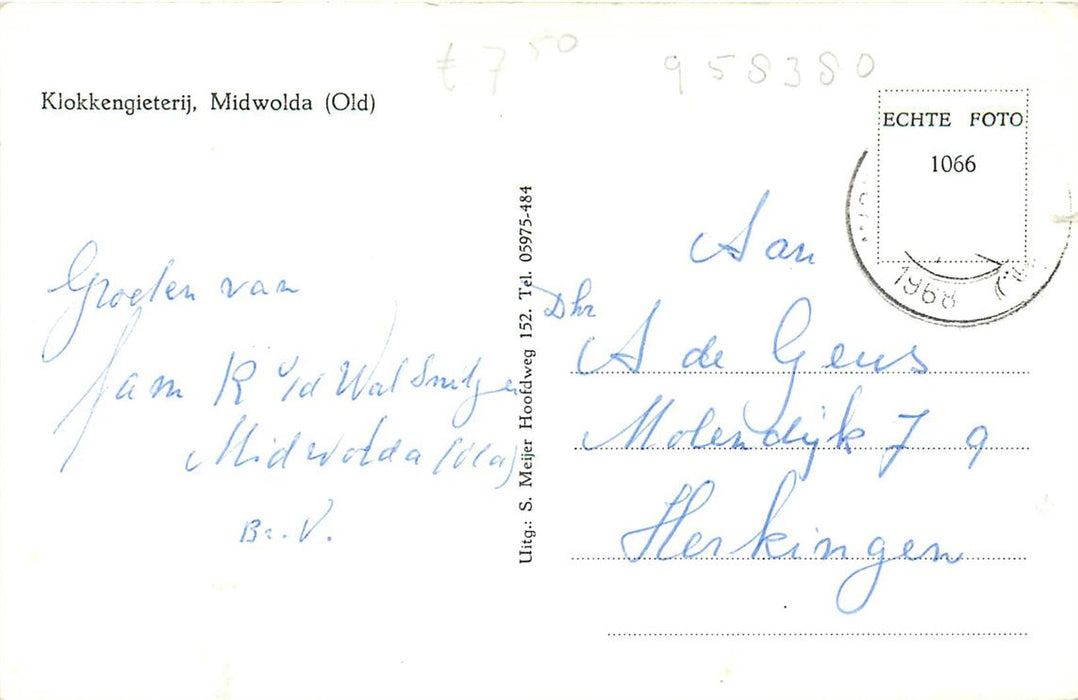 € 7 50
958380
Klokkengieterij, Midwolda (Old)
ECHTE FOTO
1066
1968
Groeten van
fam R v/d Wal
Midwolda (Old)
Br. V.
Uitg: S. Meijer Hoofdweg 152. Tel. 05975-484
Aan
Dhr
A de Geus
Molendijk 79
Herkingen